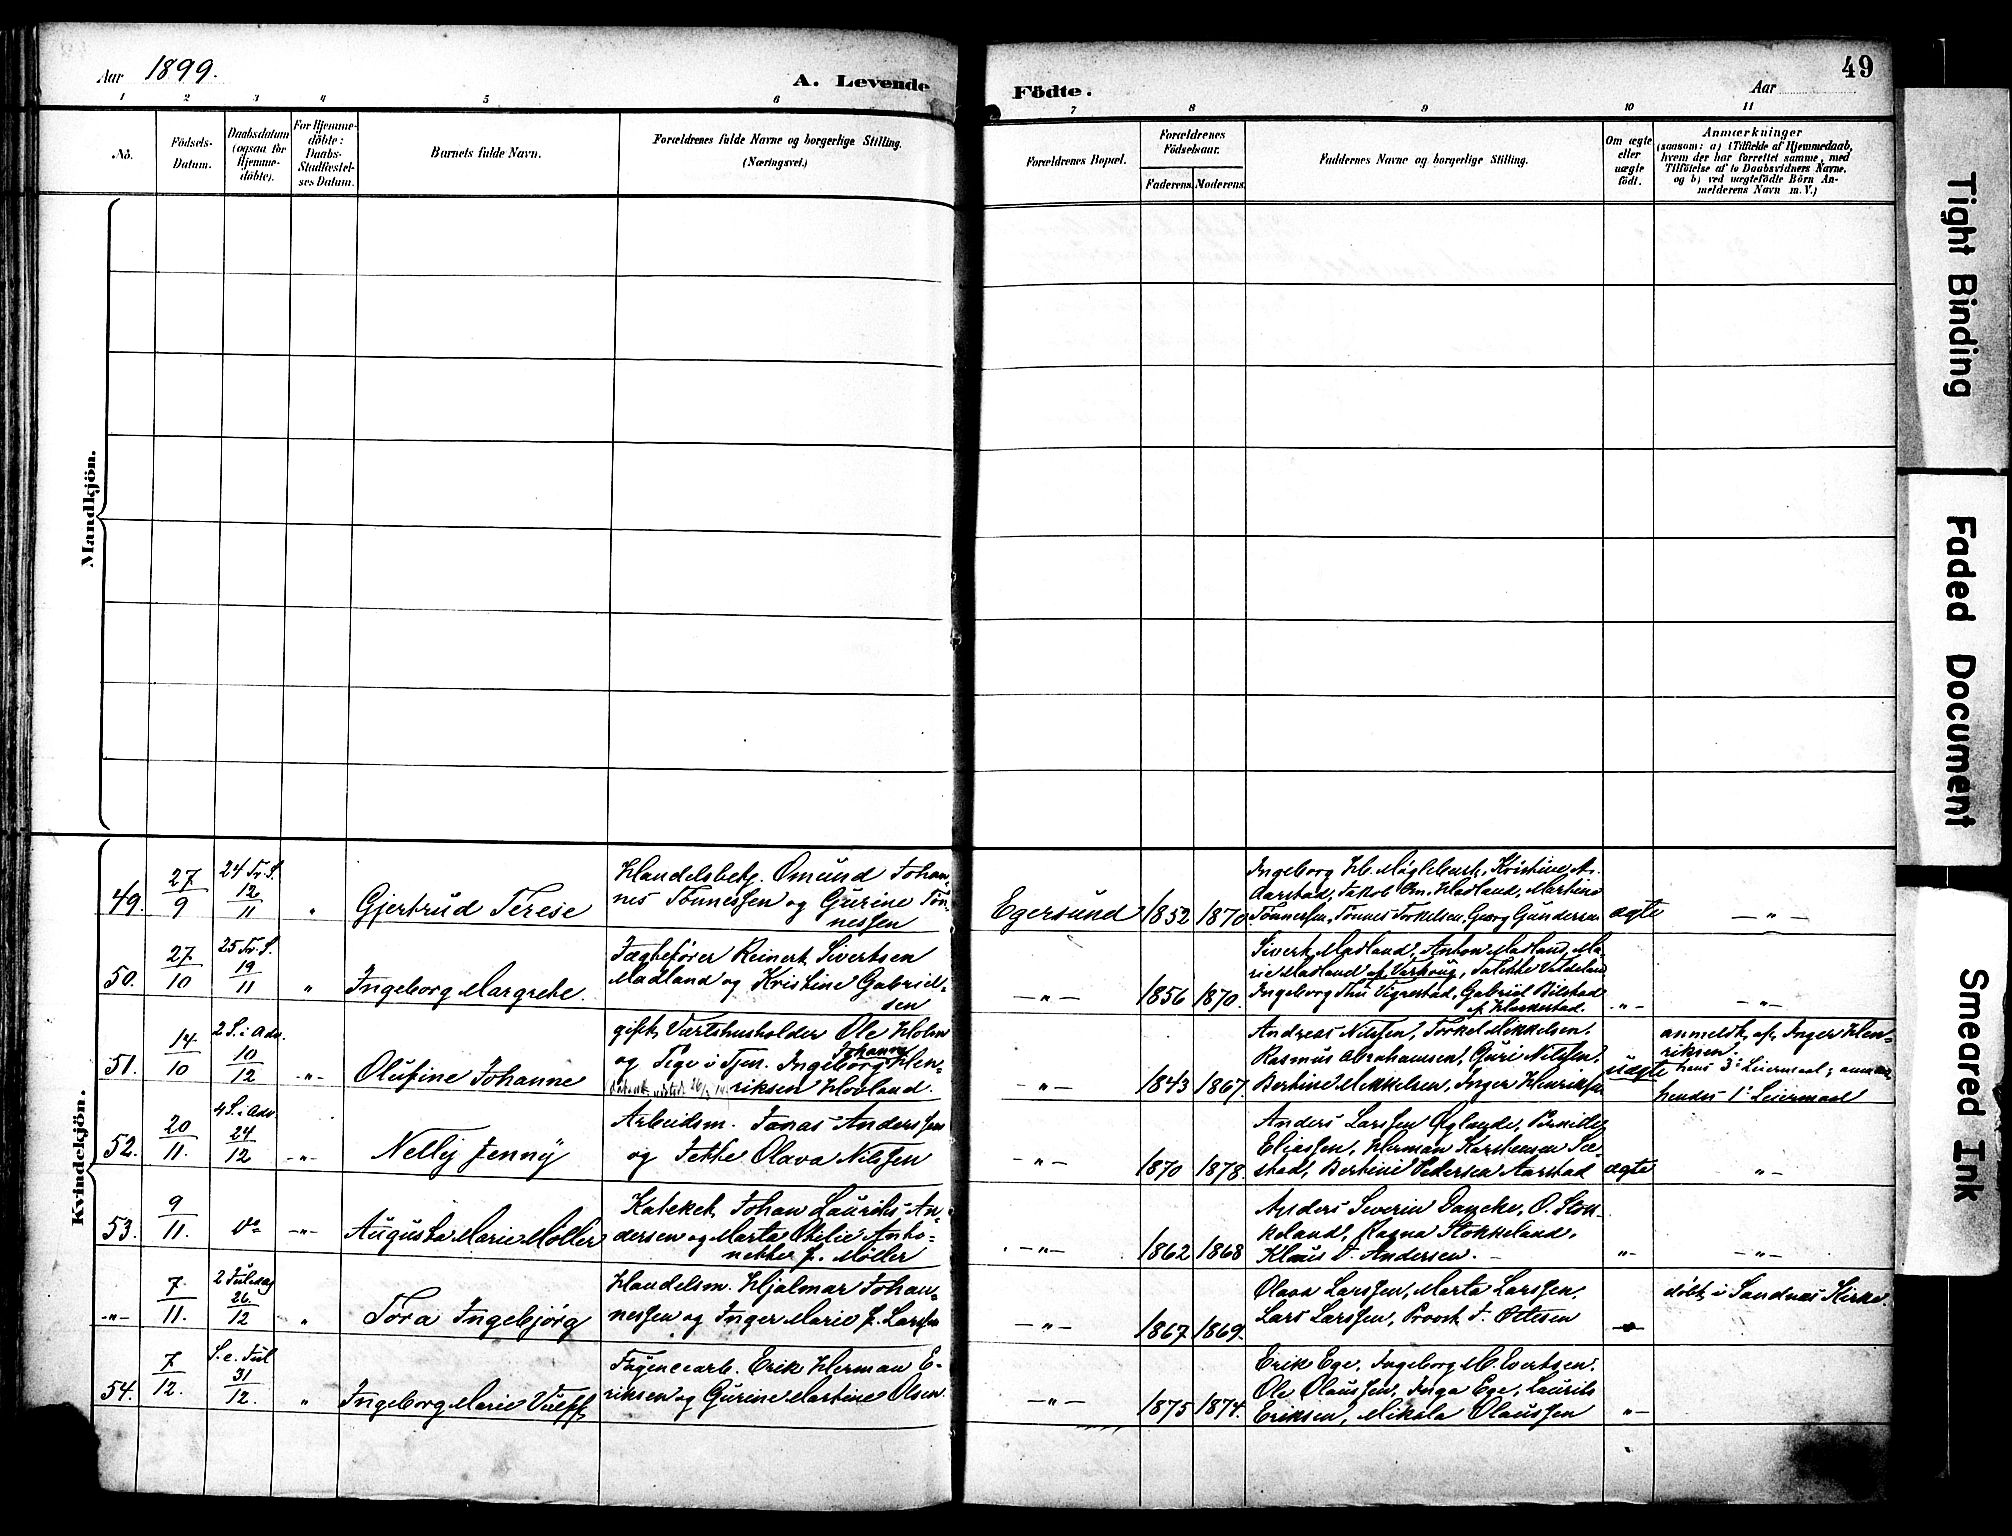 Aar 1899.
A. Levende
Födte.
Aar
49
1 2 3 4 5 6
7 8 9 10 11
No.
Födsels-
Datum.
Daabsdatum
(ogsaa for
Hjemme-
döbte).
For Hjemme-
döbte:
Daabs-
Stadfæstel-
ses Datum.
Barnets fulde Navn.
Forældrenes fulde Navne og borgerlige Stilling.
(Næringsvei.)
Forældrenes Bopæl.
Forældrenes
Födselsaar.
Faderens. Moderens.
Faddernes Navne og borgerlige Stilling.
Om ægte
eller
uægte
födt.
Anmærkninger
(saasom: a) i Tilfælde af Hjemmedaab,
hvem der har forrettet samme, med
Tilföielse af to Daabsvidners Navne,
og b) ved uægtefödte Börn An-
melderens Navn m. V.)
Mandkjön.
Kvindekjön.
49.
27/9
24 Tr. S.
12/11
"
Gjertrud Terese
Handelsbetj. Omund Johan-
nes Tönnessen og Gurine Tön-
nessen
Egersund
1852 1870
Ingeborg Kristine A.
Aarstad, Jakob Chr. Hadland, Martine
Tönnessen, Tönnes Torkelsen, Georg Gundersen
ægte
— " —
50.
27/10
25 Tr. S.
19/11
"
Ingeborg Margrete.
Fægtefører Reinert Sivertsen
Madland og Kristine Gabriel-
sen
— " —
1856 1870.
Sivert Madland, Anton Madland, Ma-
rie Madland af Varhaug, Talette
Ingeborg Thu Vigrestad, Gabriel Bilstad
af Haskestad.
" —
— " —
51.
14/10
2 S. i Adv.
10/12
— " —
Olufine Johanne
gift Værtshusholder Ole Holm
og Pige i Tjen. Ingeborg Johanne Hen-
riksen Hovland.
— " —
1843 1867.
Andreas Nilssen, Torkel Mikkelsen,
Rasmus Abrahamsen, Guri Nilssen,
Bertine Mikkelsen, Inger Henriksen
uægte
anmeldt af Inger Hen-
riksen.
hans 3' Leiermaal;
hendes 1' Leiermaal
52.
20/11.
4 S. i Adv.
24/12
— " —
Nelly Jenny
Arbeidsm. Jonas Anderssen
og Jette Olava Nilssen
— " —
1870 1878.
Anders Larssen Øglende, Pernille
Eliassen, Herman Karstensen Sæ-
stad, Bertine Pedersen Aarstad
ægte
" —
53.
9/11.
do
— " —
Augusta Marie Møller
Kateket Johan Laurits An-
dersen og Marta Otilie Anto-
nette f. Møller
— " —
1862 1868
Anders Severin Dancke, O. Stok-
keland, Ragna Stokkeland,
Klaus T. Andersen. —
" —
— " —
— " —
7/11.
2 Juledag
26./12
"
Tora Ingebjörg
Handelsm. Hjalmar Johan-
nessen og Inger Marie f. Larssen
— " —
1867 1869.
Olava Larssen, Marta Larssen,
Lars Larssen, Provst T. Ottesen
— " —
döbt i Sandnes Kirke.
54.
7/12.
S. e. Jul
31/12.
"
Ingeborg Marie Wulff
Fayencearb. Erik Herman E-
riksen og Gurine Martine Olsen
— " —
1875 1874.
Erik Ege, Ingeborg M. Evertsen,
Ole Olaussen, Inga Ege, Laurits
Eriksen, Mikala Olaussen
" —
Tight Binding
Faded Document
Smeared Ink